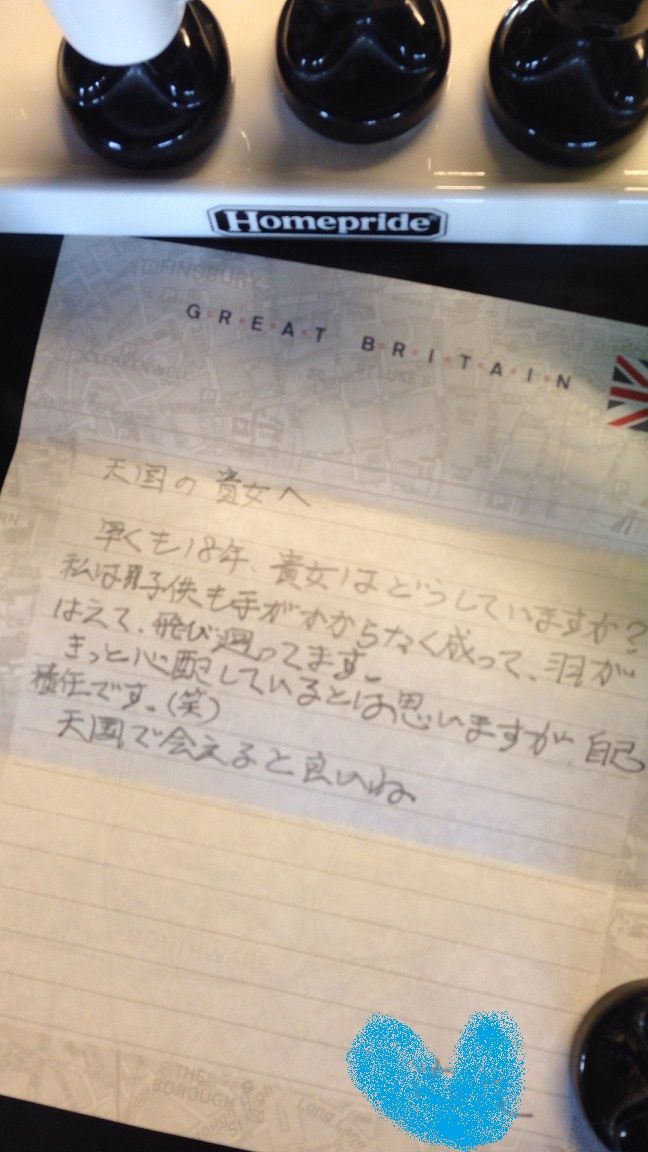 Homepride
FINSBURY
GREAT BRITAIN
CLERKENWELL
ST LUKE'S
天国の貴女へ
早くも18年、貴女はどうしていますか?
私は子供も手がかからなく成って、羽が
はえて、飛び廻ってます。
きっと心配しているとは思いますが、自己
責任です。(笑)
天国で会えると良いね
SOUTHWARK
THE
BOROUGH
Long Lane